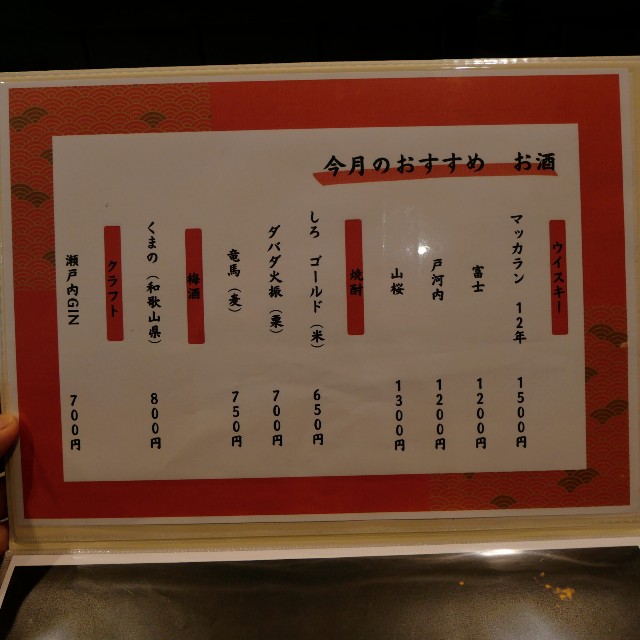 今月のおすすめ お酒
ウイスキー
マッカラン 12年 1500円
富士 1200円
戸河内 1200円
山桜 1300円
焼酎
しろ ゴールド(米) 650円
ダバダ火振(栗) 700円
竜馬(麦) 750円
梅酒
くまの(和歌山県) 800円
クラフト
瀬戸内GIN 700円